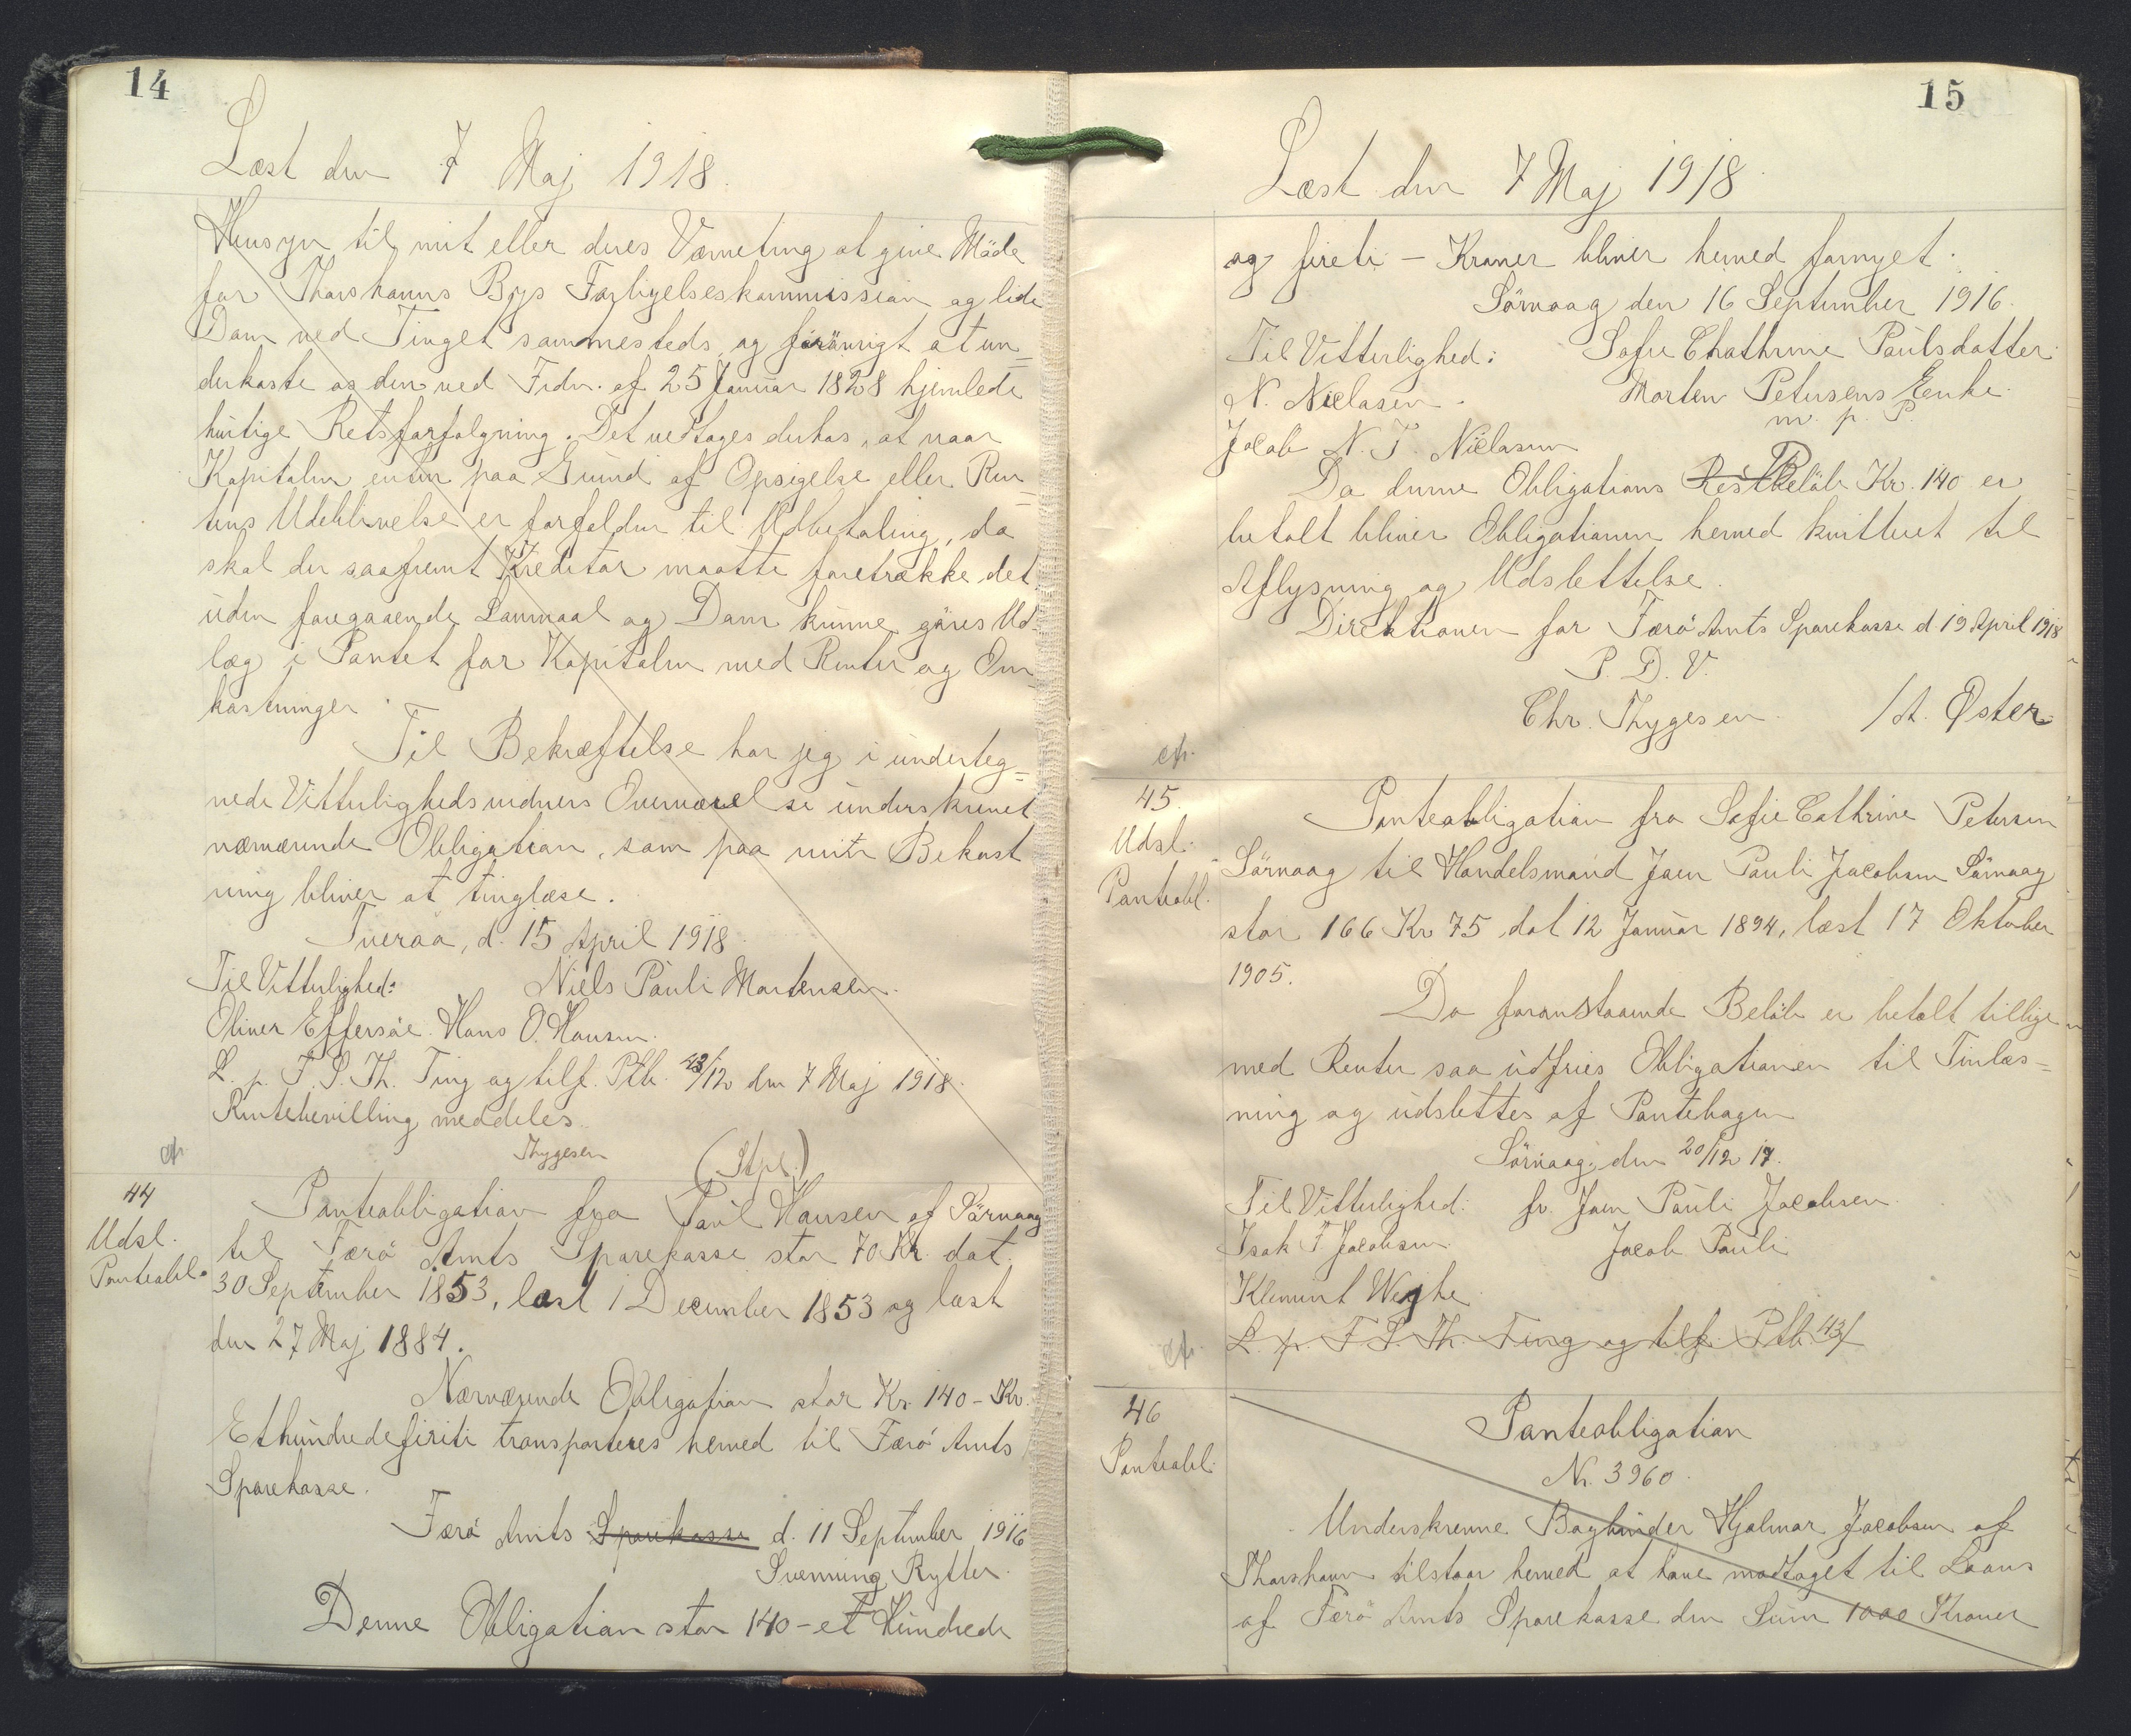 14
Læst den 7 Maj 1918.
Hensyn til mit eller deres Værneting at give Möde
for Thorshavns Bys Forligelseskommission og lide
Dom ved Tinget sammesteds og forövrigt at un=
derkaste os den ved Frdn. af 25 Januar 1828 hjemlede
hurtige Retsforfølgning. Det vedtages derhos, at naar
Kapitalen enten paa Grund af Opsigelse eller Ren=
tens Udeblivelse er forfalden til Udbetaling, da
skal der saafremt Kreditor maatte foretrække det
uden foregaaende Lovmaal og Dom kunne göres Ud=
læg i Pantet for Kapitalen med Renter og Om=
kostninger.
Til Bekræftelse har jeg i underteg=
nede Vitterlighedsvidners Overværelse underskrevet
nærværende Obligation, som paa min Bekost
ning bliver at tinglæse.
Tveraa, d. 15 April 1918
Til Vitterlighed: Niels Pauli Mortensen.
Oliver Effersöe. Hans O. Hansen.
L. p. F. S. Th. Ting og tilf. Ptb. 43/12 den 7 Maj 1918.
Rentebevilling meddeles.
Thygesen
(Stpl.)
cfr.
44
Udsl.
Panteobl.
Panteobligation fra Paul Hansen af Sörvaag
til Færö Amts Sparekasse stor 70 Kr. dat.
30 September 1853, læst 1 December 1853 og læst
den 27 Maj 1884.
Nærværende Obligation stor Kr. 140 - Kr.
Ethundredefirti transporteres herved til Færö Amts
Sparekasse.
Færö Amts Sparekasse d. 11 September 1916
Svenning Rytter.
Denne Obligation stor 140 - et Hundrede
15
Læst den 7 Maj 1918
og fireti - Kroner bliver herved fornyet.
Sörvaag den 16 September 1916.
Til Vitterlighed: Sofie Chathrine Paulsdatter
N. Nielasen. Morten Petersens Enke.
m. p. P.
Jacob N. T. Nielasen
Da denne Obligations Restbeløb Kr. 140 er
betalt bliver Obligationen herved kvitteret til
Aflysning og Udslettelse.
Direktionen for Færö Amts Sparekasse d 19 April 1918
P. D. V.
Chr. Thygesen. / A. Øster.
cfr.
45.
Udsl.
Panteobl.
Panteobligation fra Sofie Cathrine Petersen
Sörvaag til Handelsmand Joen Pauli Jacobsen Sörvaag
stor 166 Kr 75 dat 12 Januar 1894, læst 17 Oktober
1905.
Da foranstaaende Belöb er betalt tillige
med Renter saa udfries Obligationen til Tinlæs=
ning og udslettes af Pantebogen
Sörvaag, den 20/12 17.
Til Vitterlighed: fr. Joen Pauli Jacobsen
Isak F. Jacobsen. Jacob Pauli
Klement Weyhe
L. p. F S. Th. Ting og tilf. Ptb. 43/
cfr.
46
Panteobl.
Panteobligation
Nr. 3960.
Underskrevne Bogbinder Hjalmar Jacobsen af
Thorshavn tilstaar herved at have modtaget til Laans
af Færö Amts Sparekasse den Sum 1000 Kroner